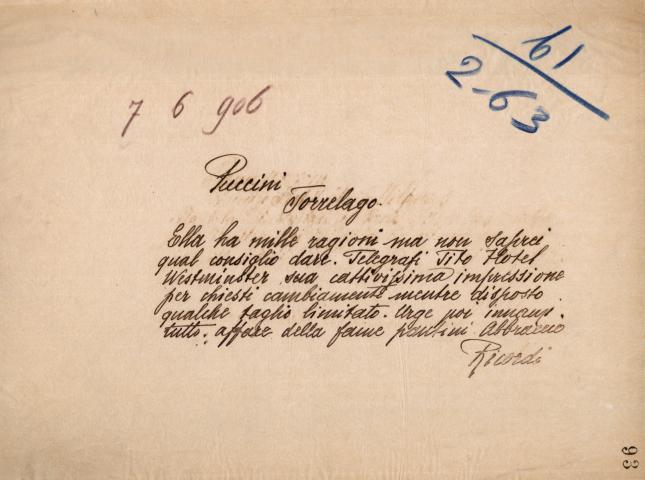 61
2-63
7 6 906
Puccini
Torrelago.
Ella ha mille ragioni ma non saprei
qual consiglio dare. Telegrafi Tito Hotel
Westminster sua cattivissima impressione
per chiesti cambiamenti mentre disposto
qualche taglio limitato. Urge poi innanz.
tutto: affare della fame Abbraccio
Ricordi
93